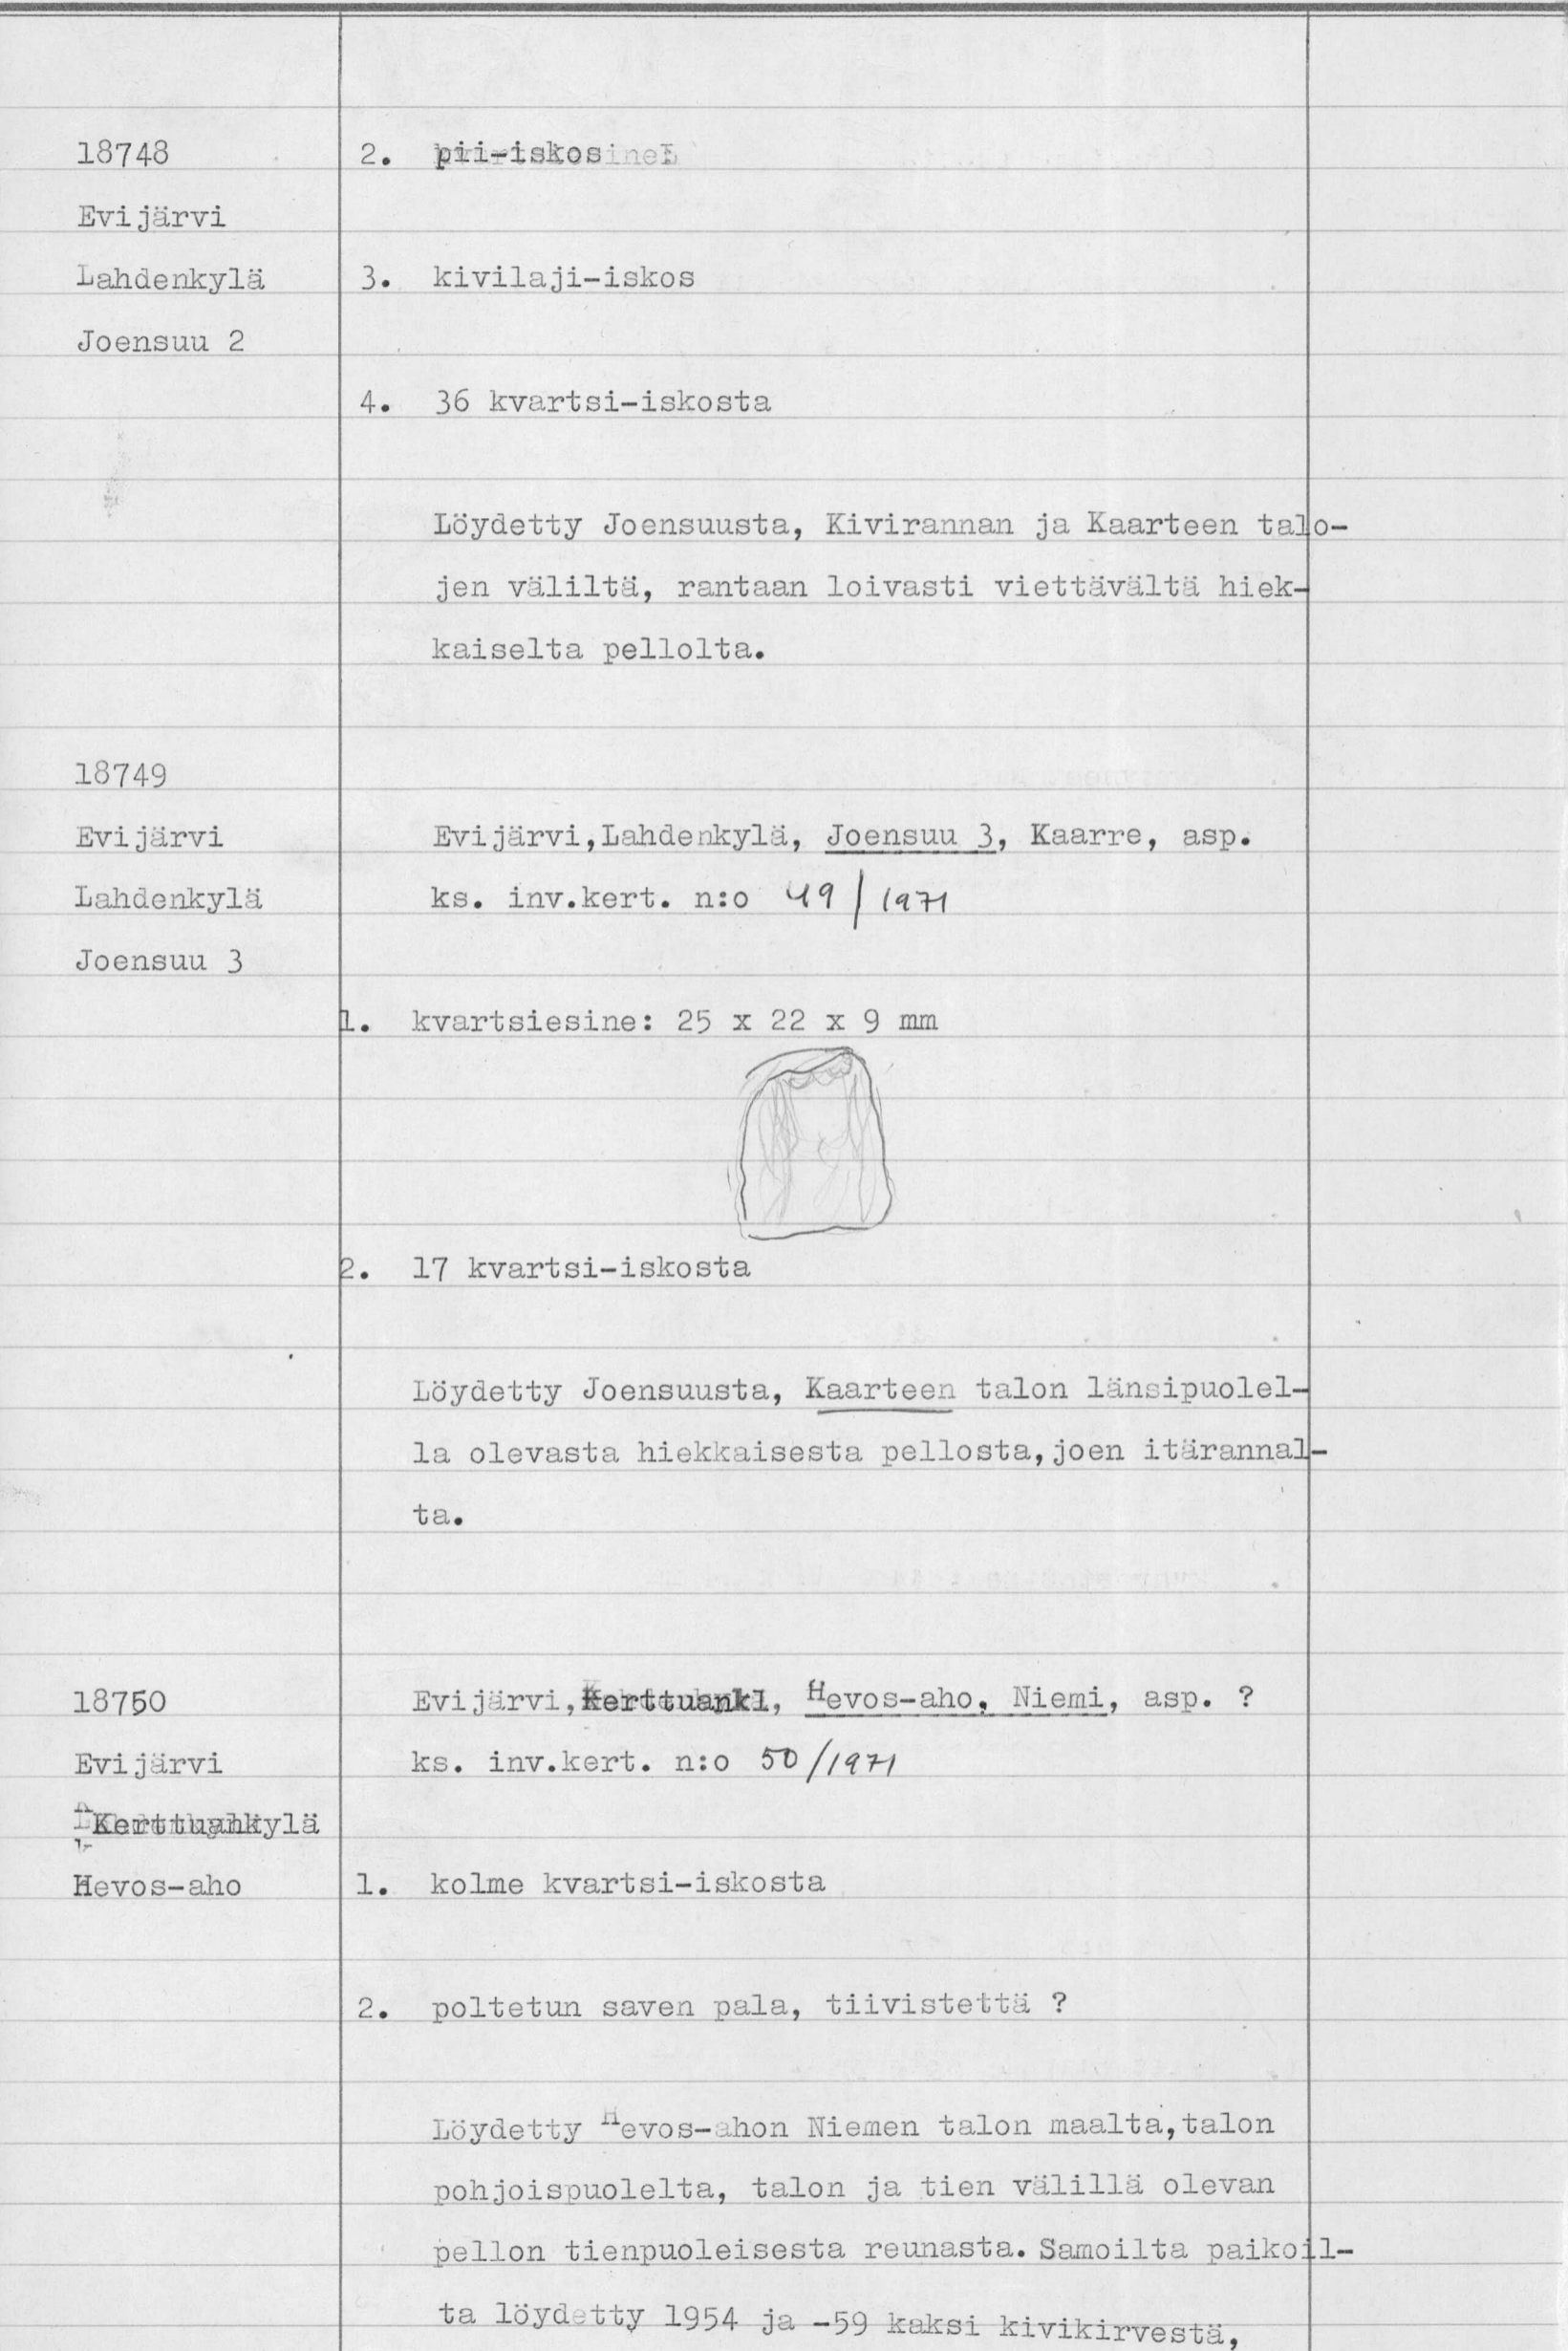 18748 2. pii-iskos
Evijärvi
Lahdenkylä 3. kivilaji-iskos
Joensuu 2
4. 36 kvartsi-iskosta
Löydetty Joensuusta, Kivirannan ja Kaarteen talo-
jen väliltä, rantaan loivasti viettävältä hiek-
kaiselta pellolta.
18749
Evijärvi Evijärvi,Lahdenkylä, Joensuu 3, Kaarre, asp.
Lahdenkylä ks. inv.kert. n:o 49/1971
Joensuu 3
1. kvartsiesine: 25 x 22 x 9 mm
2. 17 kvartsi-iskosta
Löydetty Joensuusta, Kaarteen talon länsipuolel-
la olevasta hiekkaisesta pellosta,joen itärannal-
ta.
18750 Evijärvi,Kerttuankl, Hevos-aho, Niemi, asp. ?
Evijärvi ks. inv.kert. n:o 50/1971
Kerttuankylä
Hevos-aho 1. kolme kvartsi-iskosta
2. poltetun saven pala, tiivistettä ?
Löydetty Hevos-ahon Niemen talon maalta,talon
pohjoispuolelta, talon ja tien välillä olevan
pellon tienpuoleisesta reunasta. Samoilta paikoil-
ta löydetty 1954 ja -59 kaksi kivikirvestä,